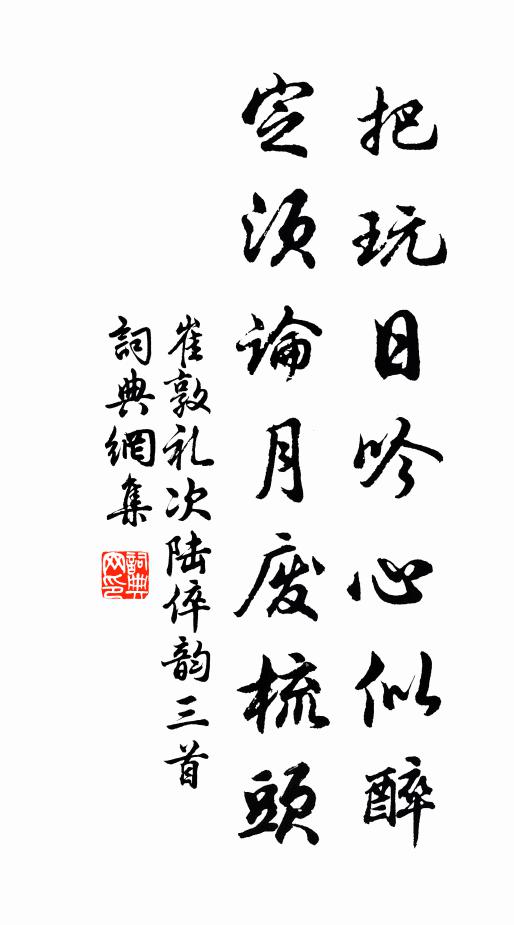 把玩日吟心似醉
定須論月廢梳頭
崔敦礼次陆倅韵三首
詞典網集
詞典網印